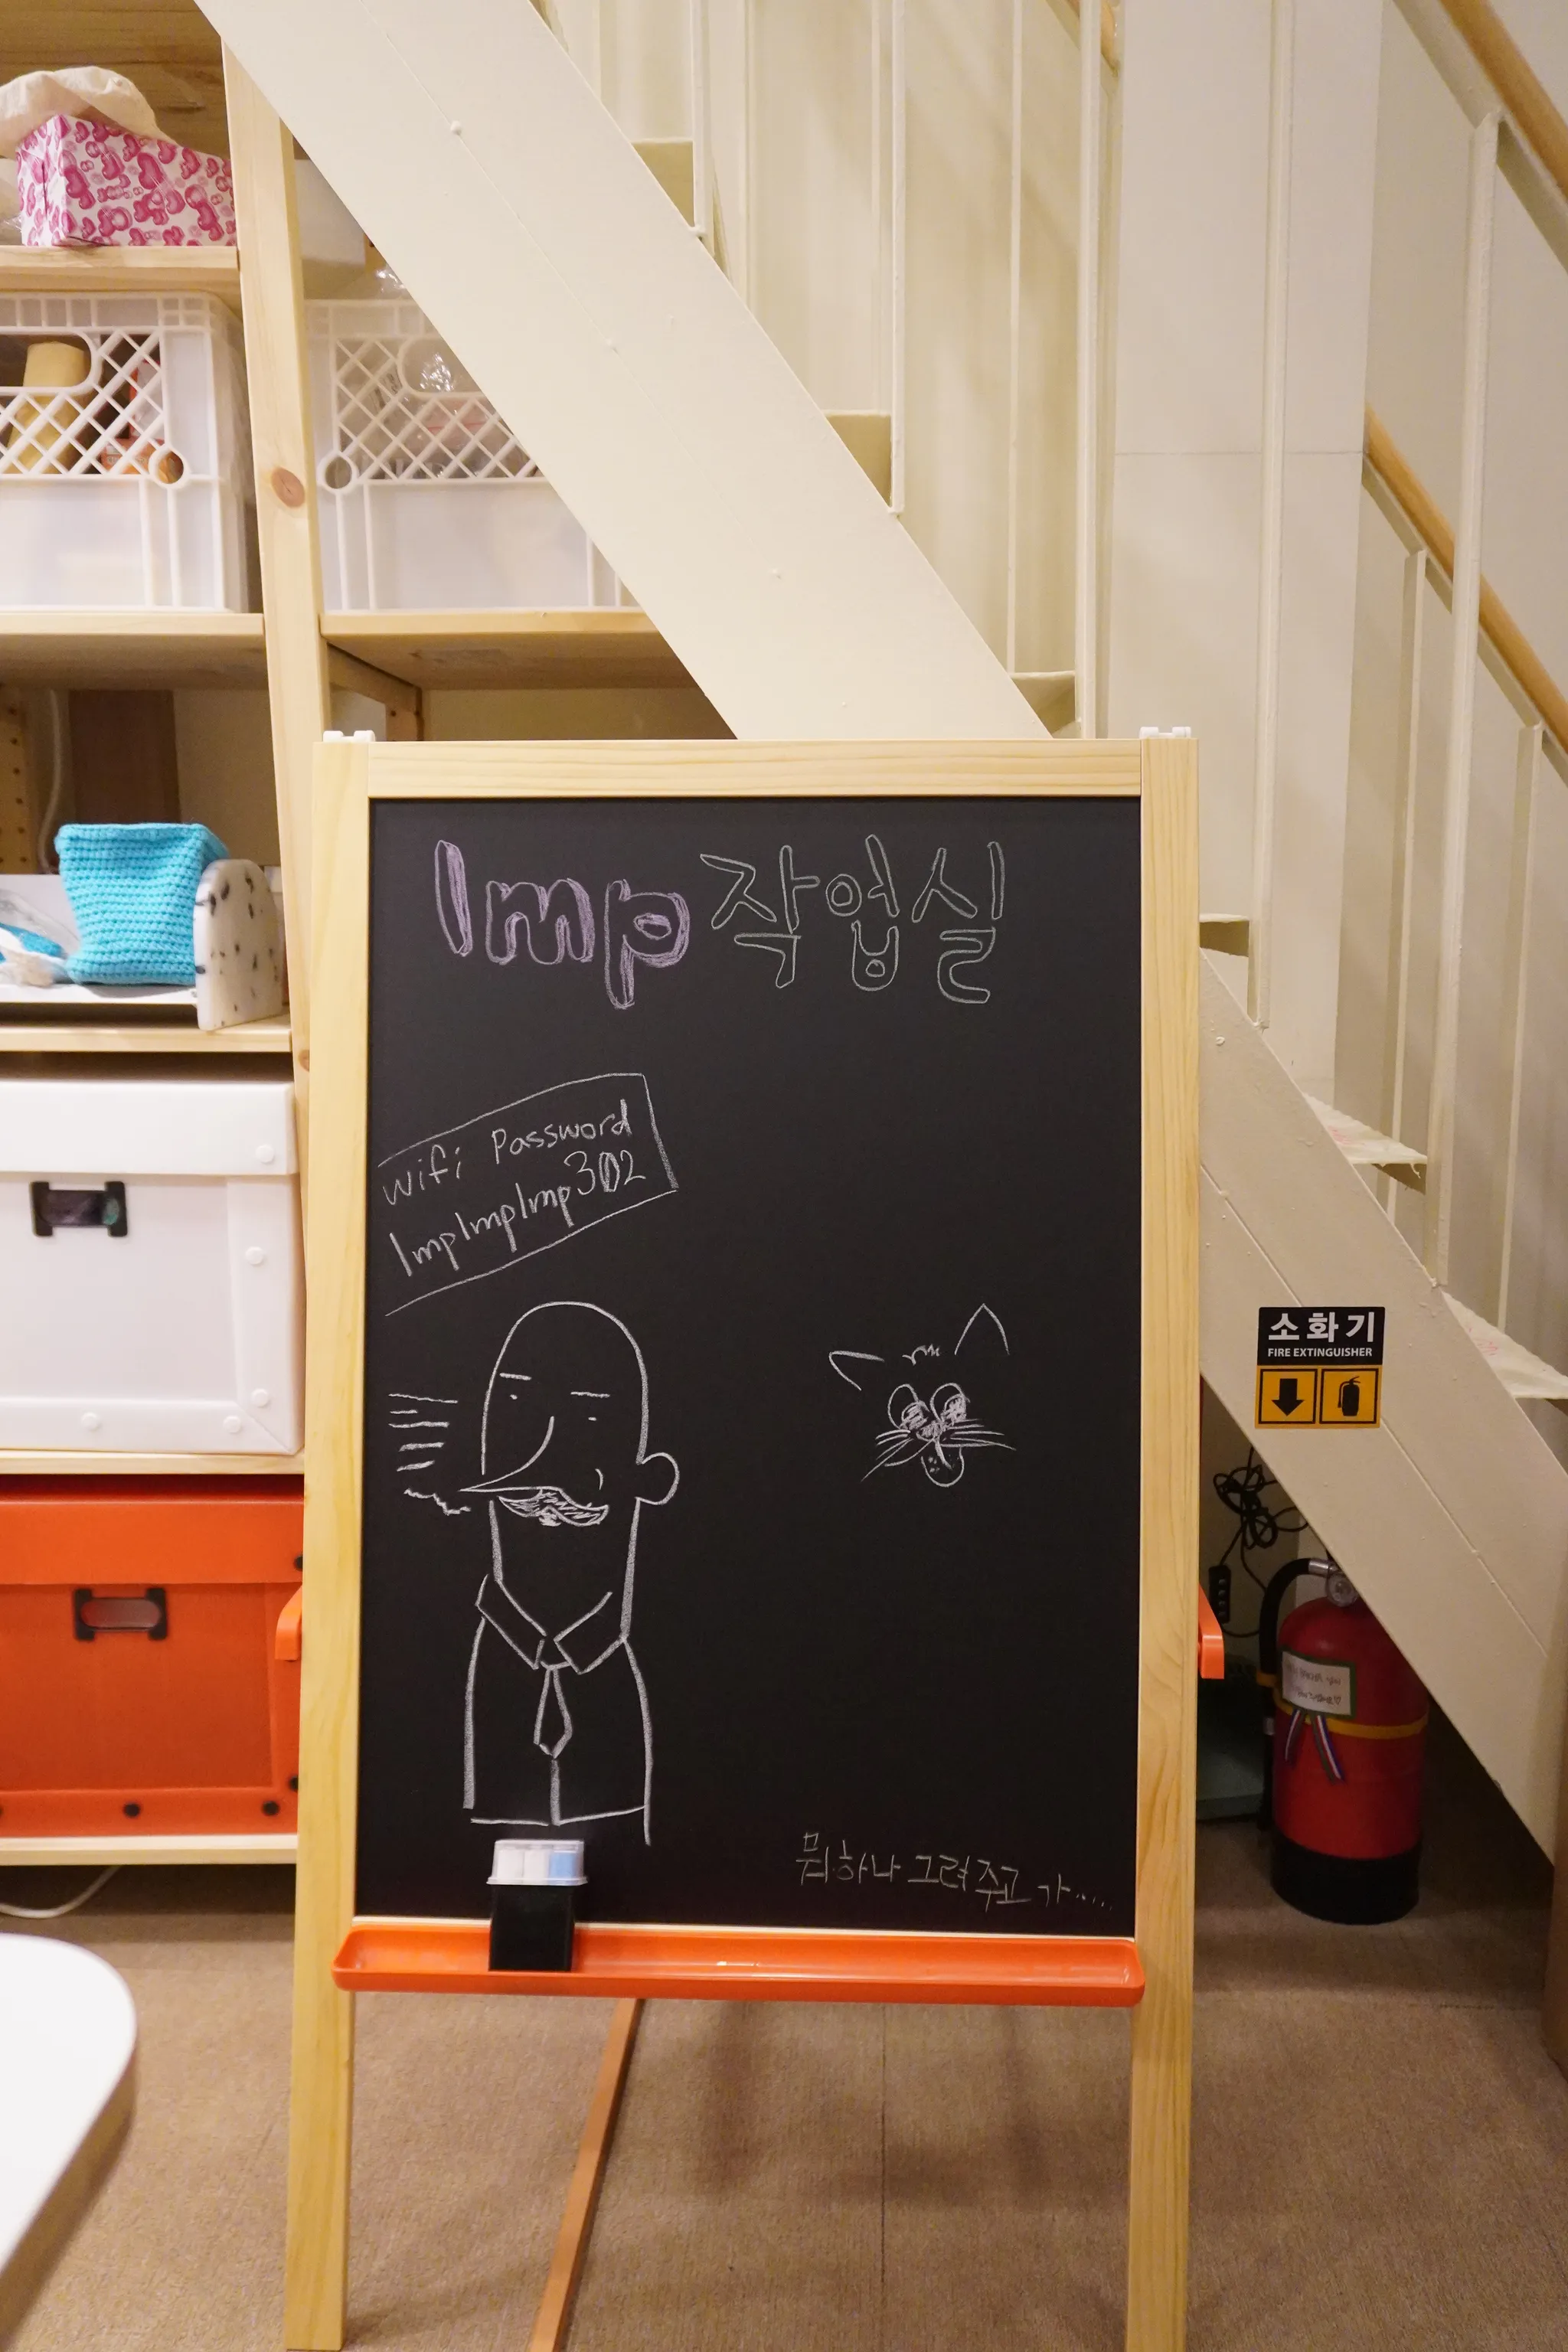 Imp 작업실
wifi Password
ImpImpImp302
소화기
FIRE EXTINGUISHER
뭐하나 그려주고 가.....